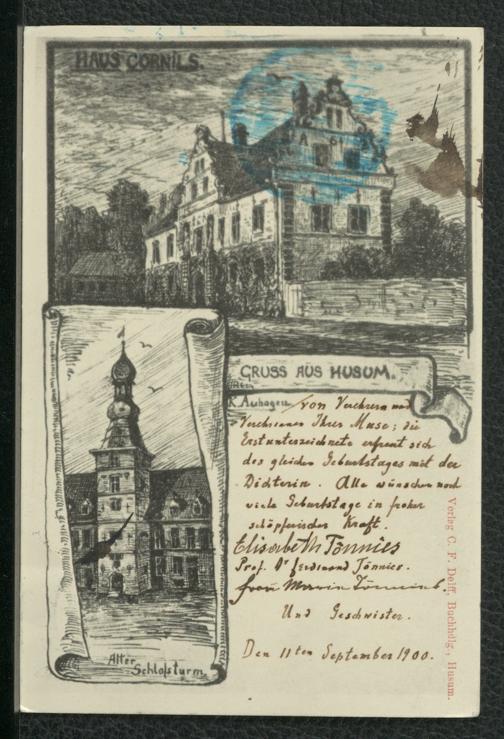 HAUS CORNILS.
GRUSS AUS HUSUM.
K. Auhagen
von Verehrern und
Verehrerinnen Ihrer Muse; die
Erstunterzeichnete erfreut sich
des gleichen Geburtstages mit der
Dichterin. Alle wünschen noch
viele Geburtstage in froher
schöpferischer Kraft.
Elisabeth Tönnies
Prof. Dr Ferdinand Tönnies.
Frau Marie Tönnies.
Und Geschwister.
Den 11ten September 1900.
Alter
Schloßturm.
Verlag C. F. Delff, Buchhdlg., Husum.